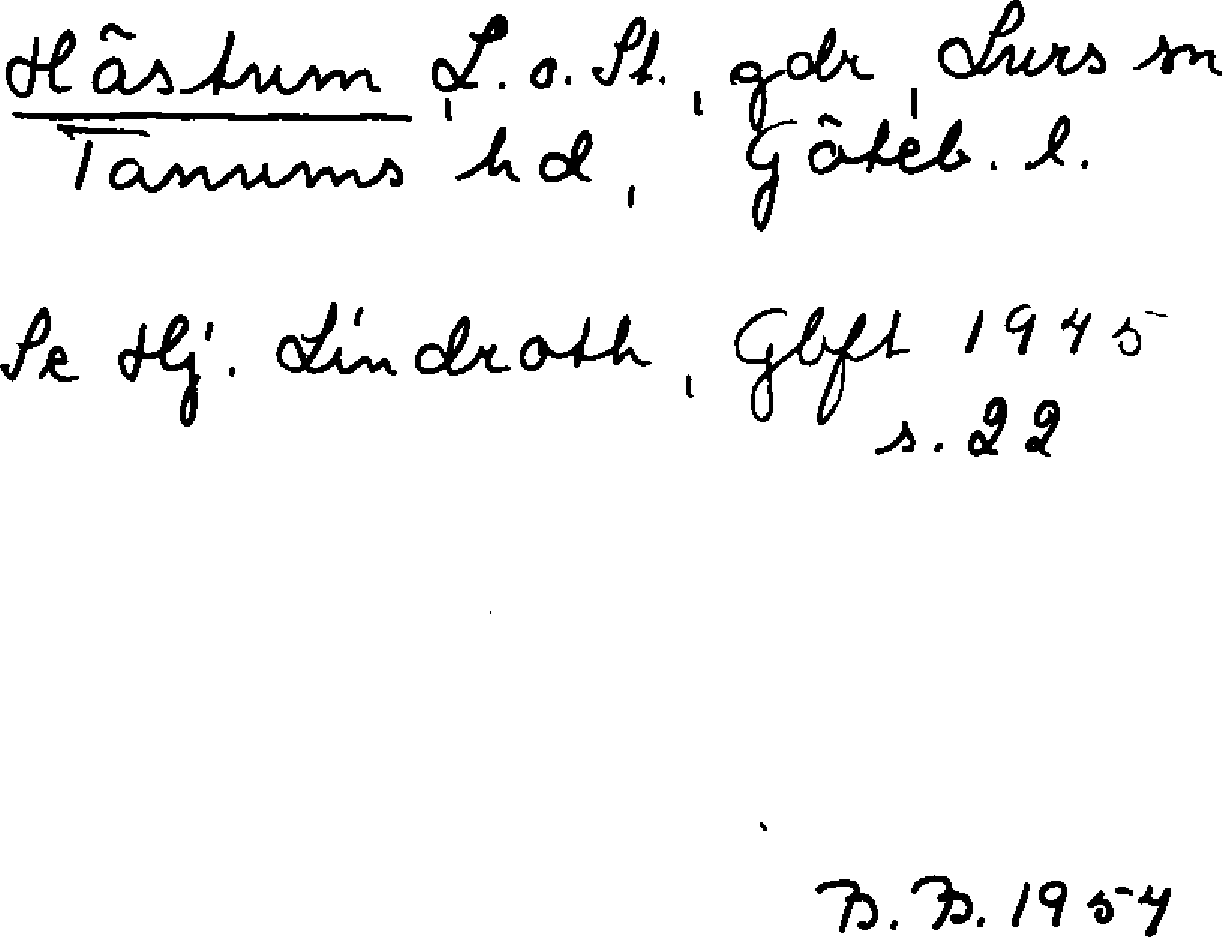 Hästum L. o. St., gdr, Lurs sn
Tanums hd, Göteb. l.
Se Hj. Lindroth, Gbft 1945
s. 22
B. B. 1954